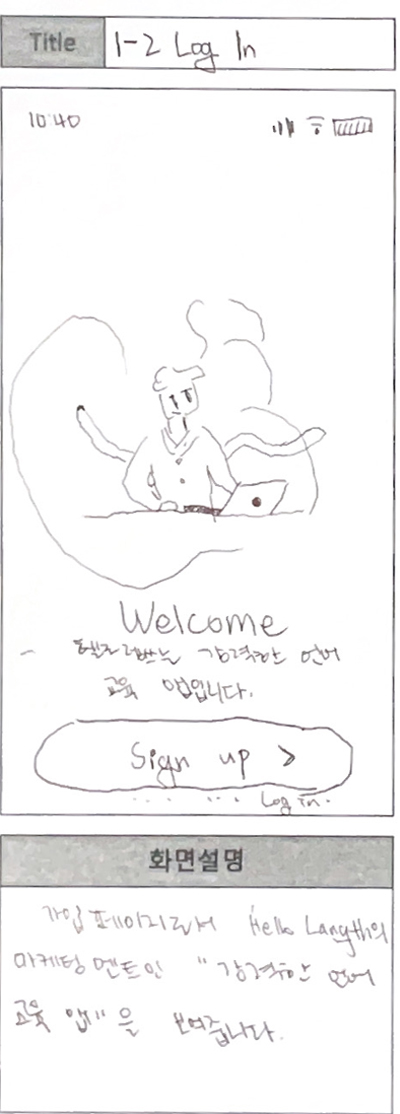 Title
1-2 Log In
10:40
Welcome
강력한 언어
교육 앱입니다.
Sign up >
.... ... Log in.
화면설명
가입 페이지로서 Hello Langth의
마케팅 멘트인 "강력한 언어
교육 앱"을 보여줍니다.